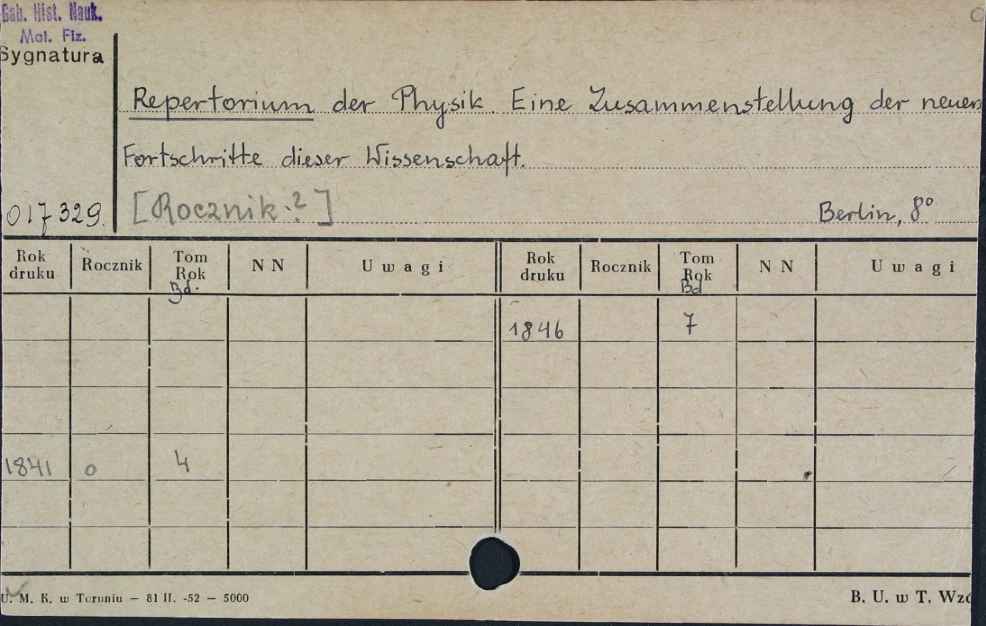 Gab. Hist. Nauk.
Mat. Fiz.
Sygnatura
Repertorium der Physik. Eine Zusammenstellung der neuen
Fortschritte dieser Wissenschaft.
017329. [Rocznik:?] Berlin, 8°
Rok druku Rocznik Tom Rok Bd. NN Uwagi Rok druku Rocznik Tom Rok Bd NN Uwagi
1846 7
1841 0 4
U. M. K. w Toruniu — 81 II. -52 — 5000 B. U. w T. Wzó